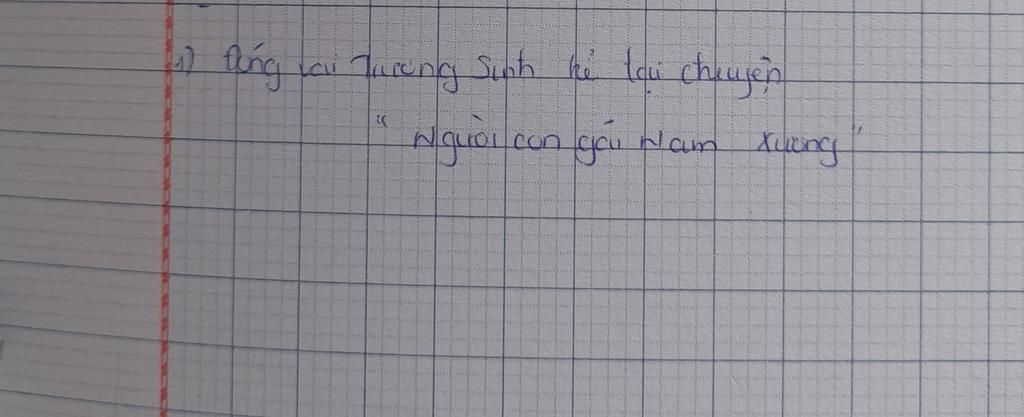 1) Đóng vai Trương Sinh kể lại chuyện
"Người con gái Nam Xương"